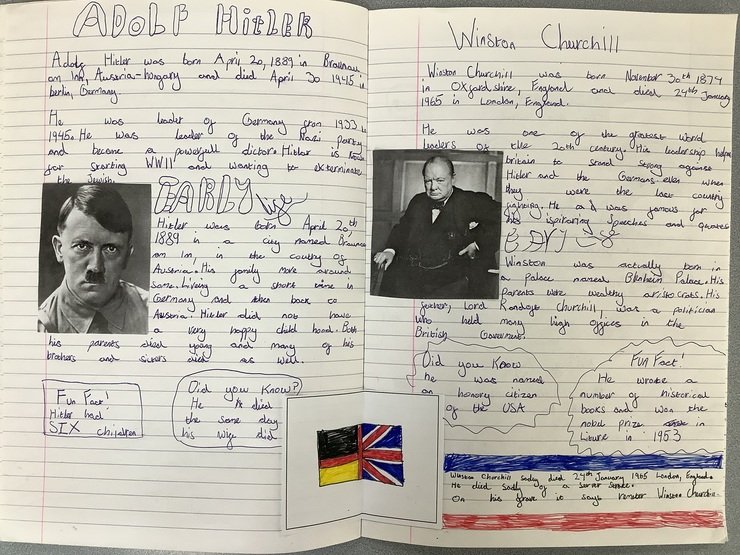 ADOLF HITLER
Adolf Hitler was born April 20, 1889 in Braunau
am Inn, Austria-Hungary and died April 30 1945 in
berlin, Germany.
He was leader of Germany from 1933 in
1945. He was leader of the Nazi party
and became a powerfull dictor. Hitler is
for starting WWII and wanting to exterminate
the Jewish.
EARLY life
Hitler was born April 20th
1889 in a city named Braunau
am Inn, in the country of
Austria. His family move around
some. Liveing a short time in
Germany and then back to
Austria. Hitler did not have
a very happy child hood. Both
his parents died young and many of his
brothers and sisters died as well.
Fun Fact!
Hitler had
SIX
Did you Know?
He died
the same day
his wife did
Winston Churchill
Winston Churchill was born November 30th 1874
in Oxfordshire, England and died 24th January
1965 in London, England.
He was one of the greatest world
leaders of the 20th century. His leadership helped
britain to stand strong against
Hitler and the Germans even when
they were the last country
fighting. He was famous for
his speeches and quotes
Winston was actually born in
a palace named Blenheim Palace. His
Parents were wealthy aristocrats. His
father, Lord Randolph Churchill, was a politician
who held many high offices in the
British
Did you Know
he was named
an honory citizen
of the USA
FUN Fact!
He wrote a
number of historical
books and won the
nobel prize
in 1953
Winston Churchill died 24th January 1965 London, England.
He died of a
On his grave it says Winston Churchill.